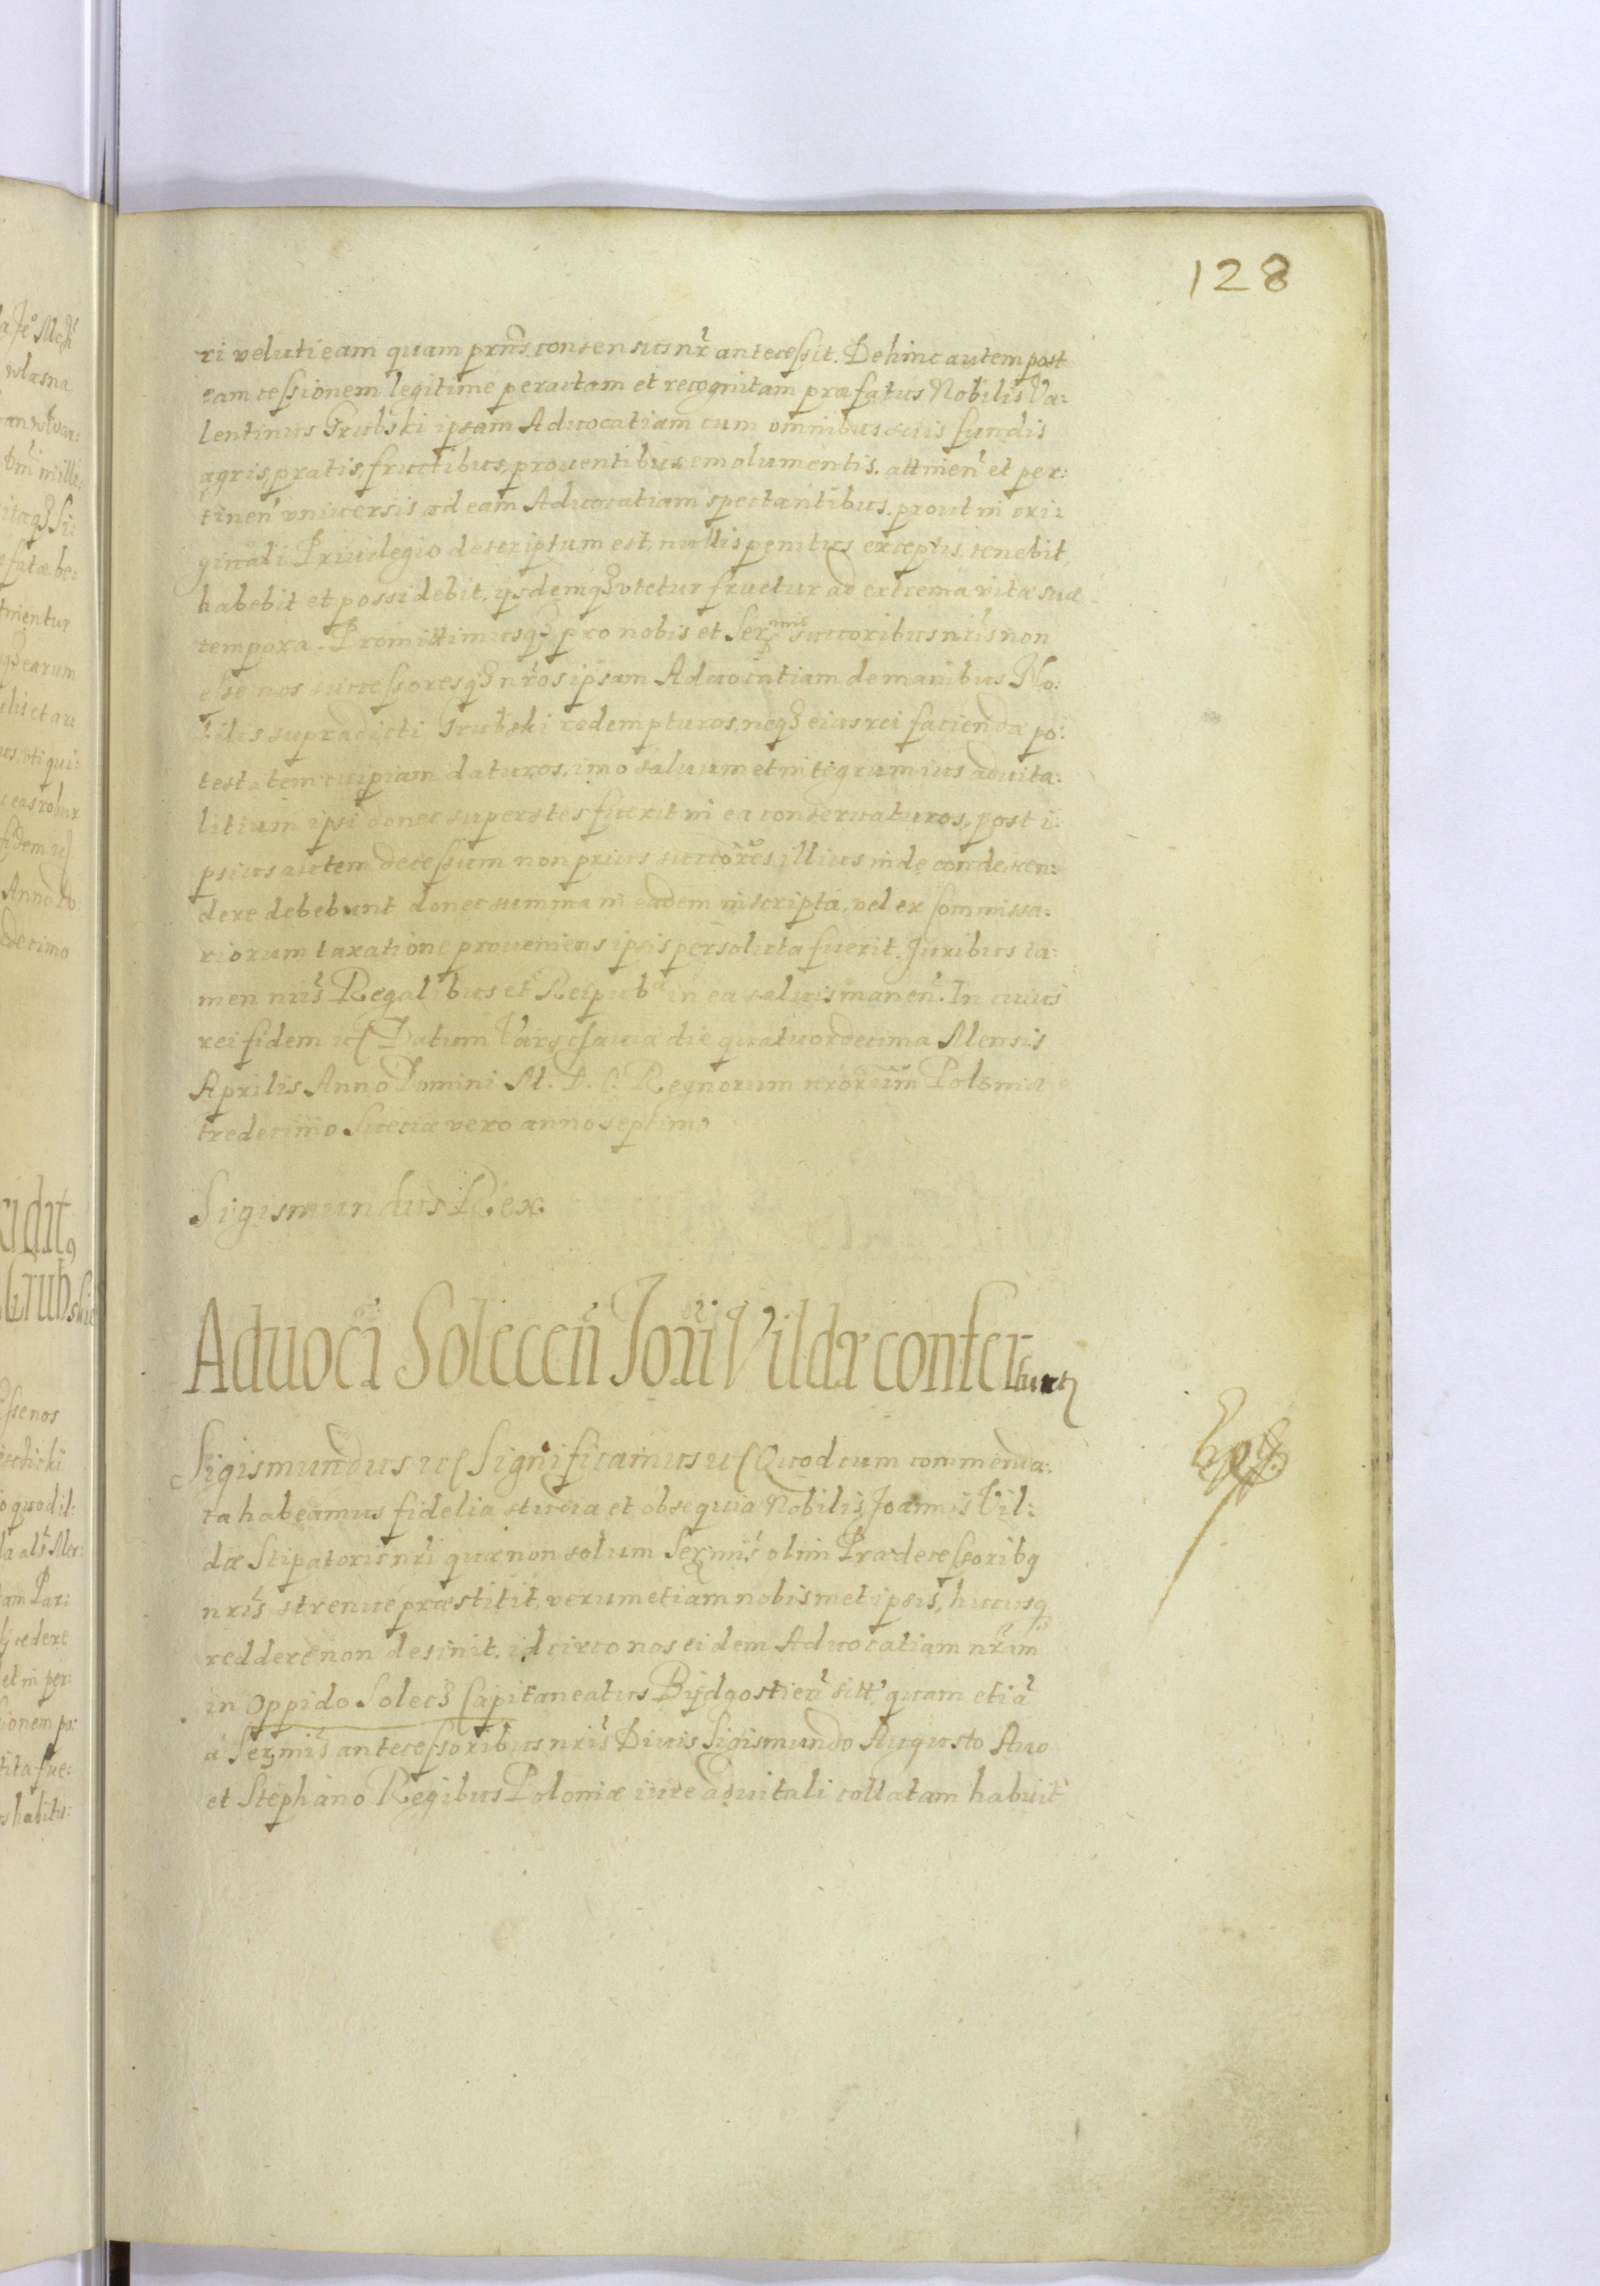 128
ri veluti eam quam prñs consensus nr̃ antecessit. Dehinc autem post
eam cessionem legitime peractam et recognitam præfatus Nobilis Va:
lentinus Grubski ipsam Aduocatiam cum omnibus suis fundis
agris, pratis, fructibus, prouentibus, emolumentis, attinen̄ et per:
tinen̄ vniuersis ad eam Aduocatiam spectantibus, prout in ori:
ginali Priuilegio descriptum est, nullis penitus exceptis, tenebit,
habebit et possidebit, ijsdemqȝ vtetur fruetur ad extrema vitæ suæ
tempora. Promittimusqȝ pro nobis et Serᵐⁱˢ succoribus nr̃is non
esse nos successoresqȝ nr̃os ipsam Aduocatiam de manibus No:
bilis supradicti Grubski redempturos, neqȝ eius rei faciendæ po:
testatem cuipiam daturos, imo saluum et integrum ius aduita:
litium ipsi donec superstes fuerit in ea conseruaturos, post i:
psius autem decessum non prius succores illius inde condescen:
dere debebunt donec summa in eadem inscripta, vel ex Commissa:
riorum taxatione proueniens ipsis persoluta fuerit. Juribus ta:
men nr̃is Regalibus et Reipub: in ea saluis manen̄. In cuius
rei fidem ꝛc Datum Varschauiæ die quatuordecima Mensis
Aprilis Anno Domini M. D. C. Regnorum nr̃orum Poloniæ
tredecimo Sueciæ vero anno septimo
Sigismundus Rex.
Aduoc̃i Solecen̄ Joñi Vildæ confer
Sigismundus ꝛc Significamus ꝛc Quod cum commenda:
ta habeamus fidelia studia et obsequia Nobilis Joannis Vil:
dæ Stipatoris nr̃i quæ non solum Serᵐⁱˢ olim Prædecessoribȝ
nr̃is, strenue præstitit, verum etiam nobismet ipsis, hucusqȝ
reddere non desinit. idcirco nos eidem Aduocatiam nr̃am
in Oppido Solecȝ Capitaneatus Bijdgostien̄ sitt̃, quam etiã
a Serᵐⁱˢ antecessoribus nr̃is Diuis Sigismundo Augusto Auo
et Stephano Regibus Poloniæ iure aduitali collatam habuit